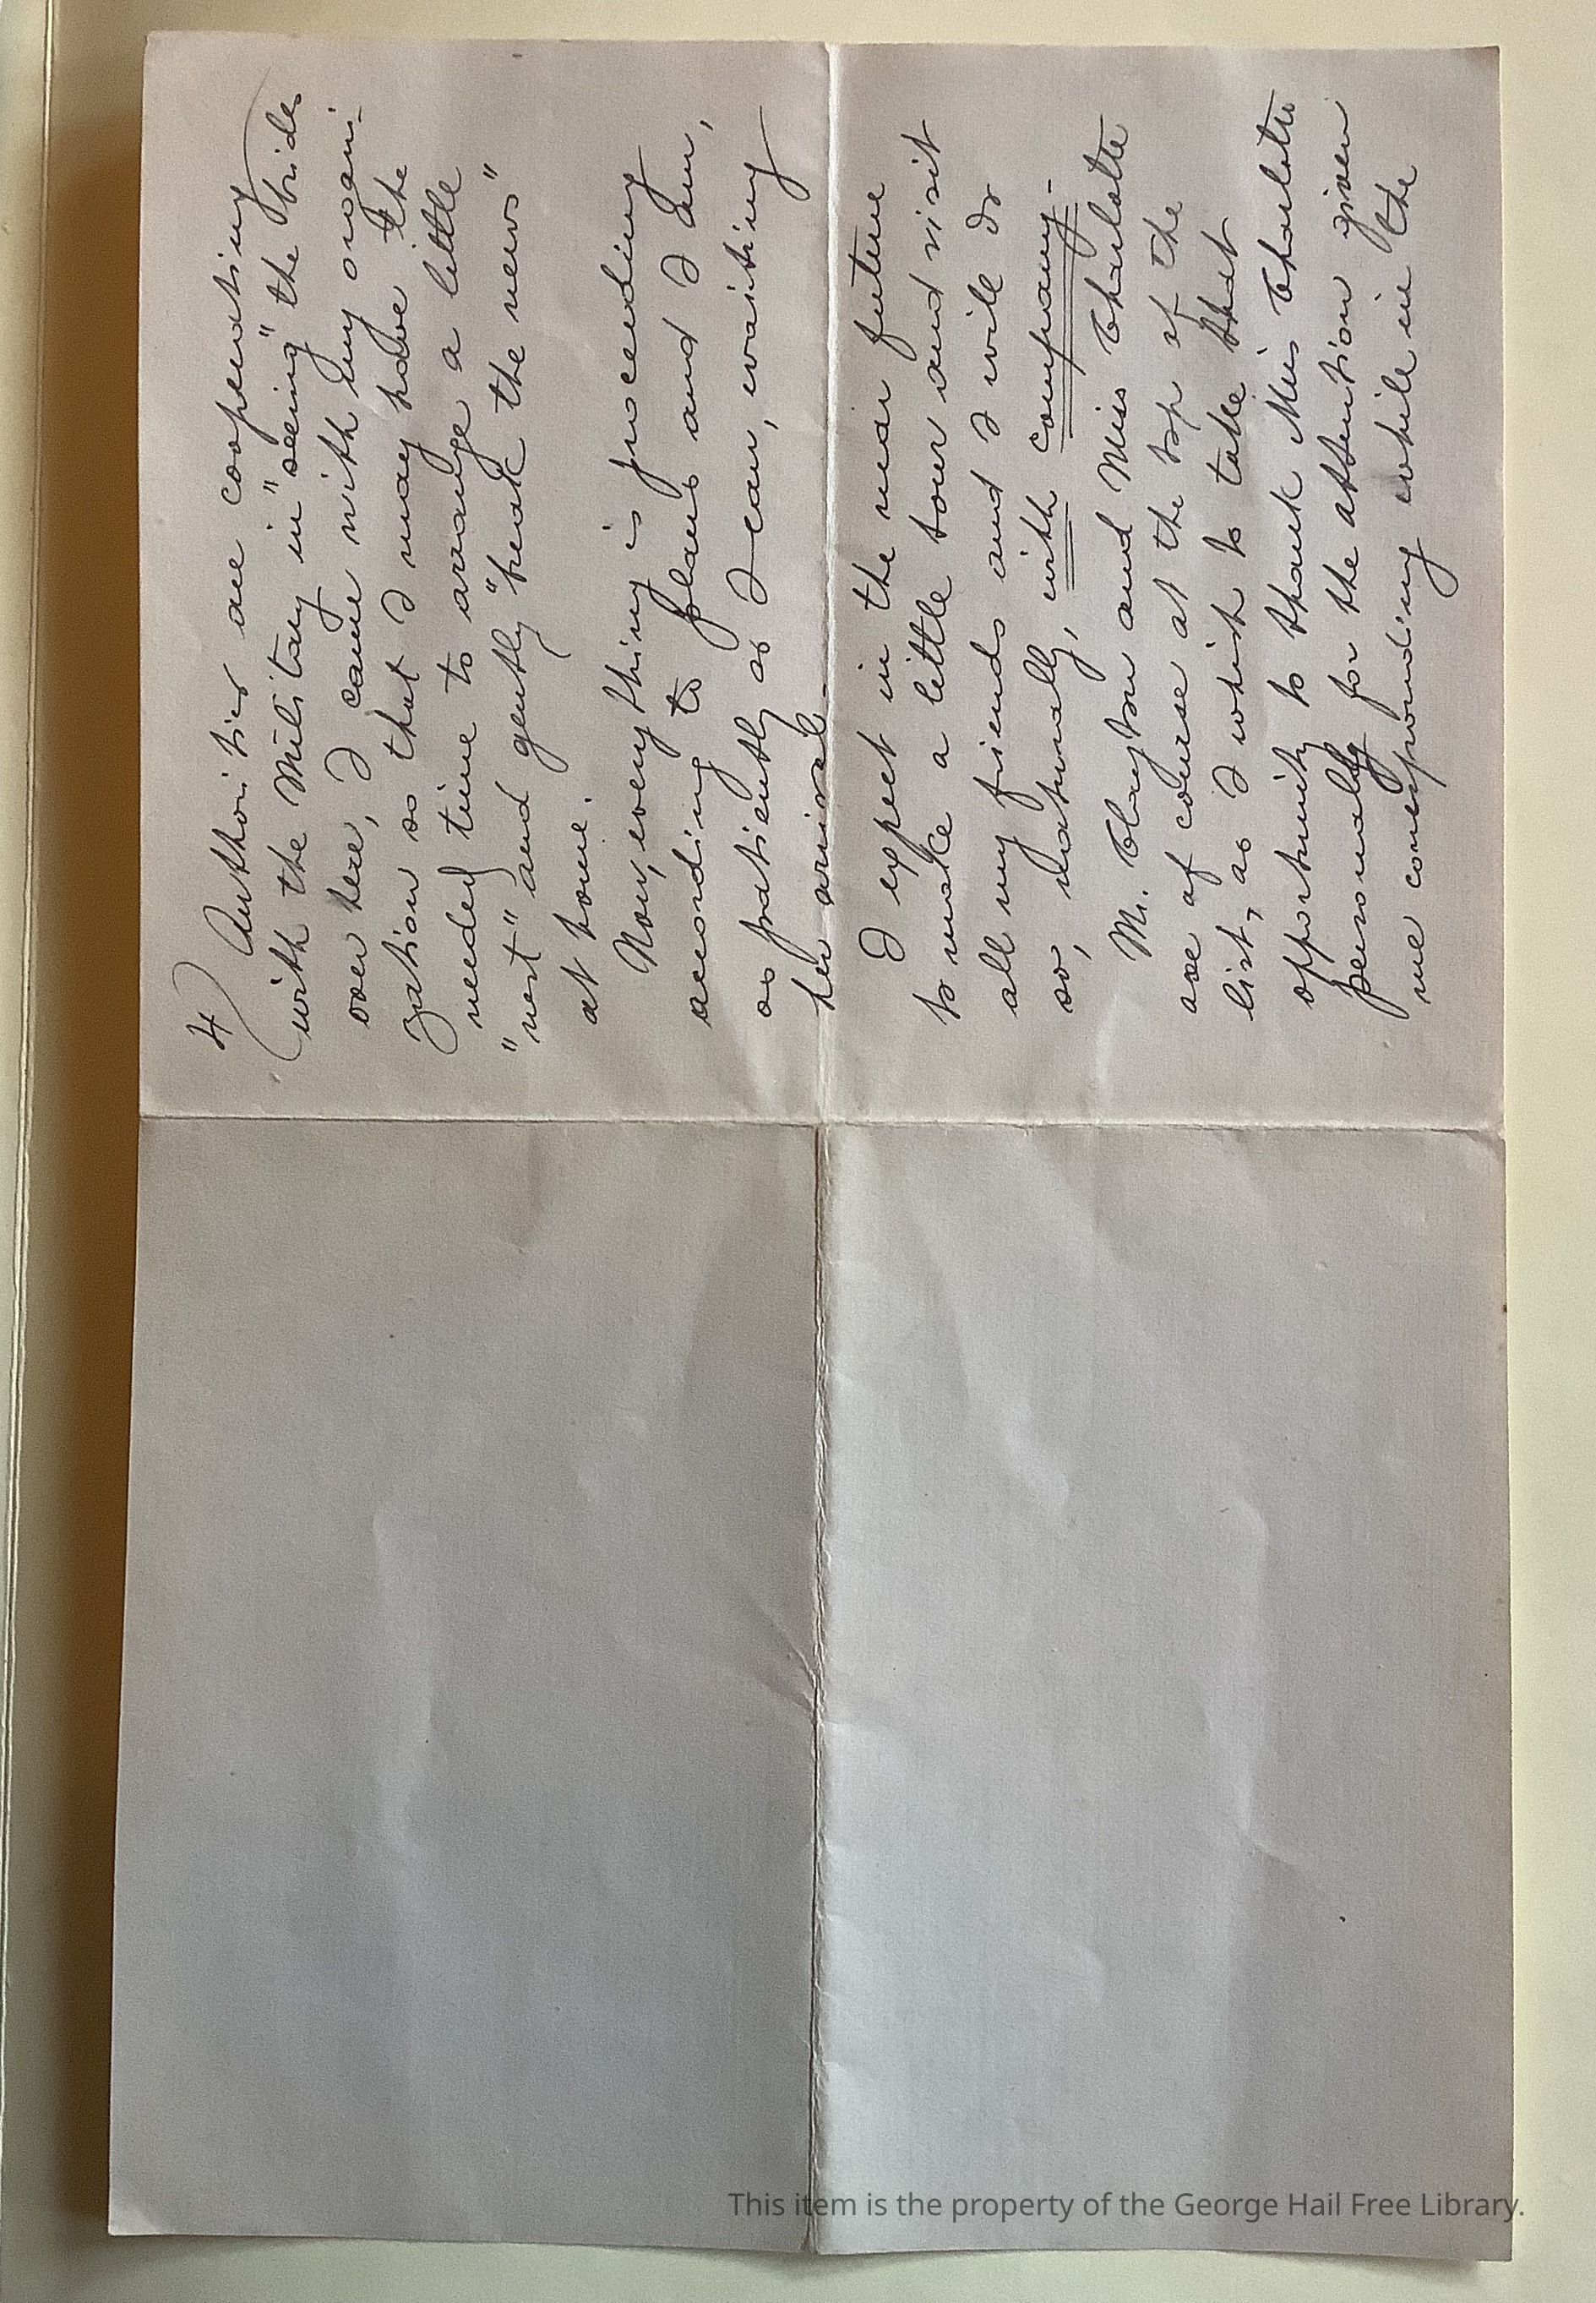 4) Authorities are cooperating
with the Military in "seeing" the brides
over here, I came with my organi-
zation so that I may have the
needed time to arrange a little
"nest" and gently "break the news"
at home.
Now, everything is proceeding
according to plans and I am,
as patiently as I can, waiting
her arival-
I expect in the near future
to make a little tour and visit
all my friends and I will do
so, naturally, with company-
Mr. Clayton and Miss Charlotte
are of course at the top of the
list, as I wish to take that
opportunity to thank Miss Charlotte
personally for the attention given
me corresponding while in the
This item is the property of the George Hail Free Library.